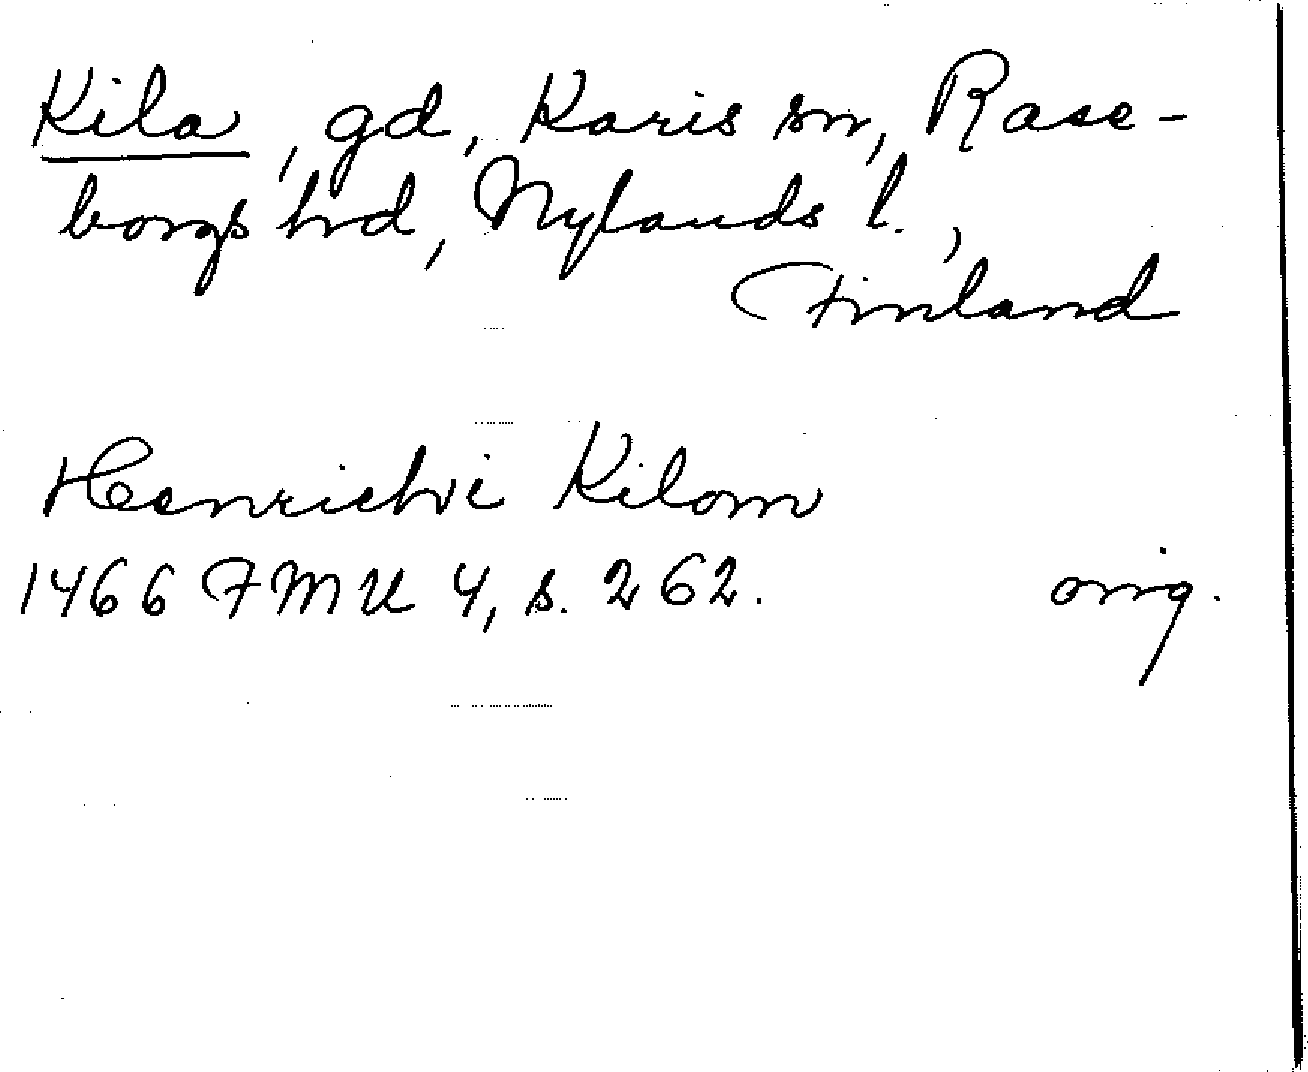 Kila, gd, Karis sn, Rase-
borgs hrd, Nylands l.,
Finland
Henrichvi Kilom
1466 FMU 4, s. 262. orig.